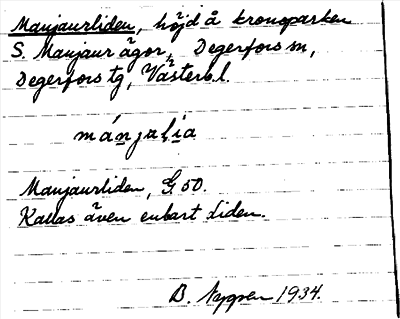 Manjaurliden, höjd å kronoparken
S. Manjaur ägor, Degerfors sn,
Degerfors tg, Västerb.l.
mánjalía
Manjaurliden, G 50.
Kallas även enbart Liden.
B. Nygren 1934.